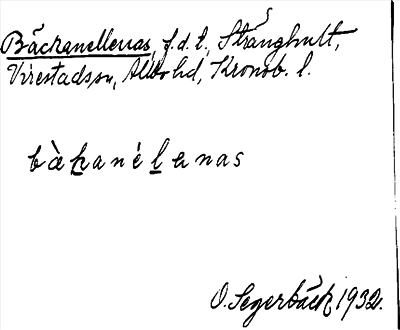 Bäckanelleras, f.d.t., Stränghult,
Virestads sn, Allbo hd, Kronob. l.
bàkanélanas
O. Segerbäck 1932.